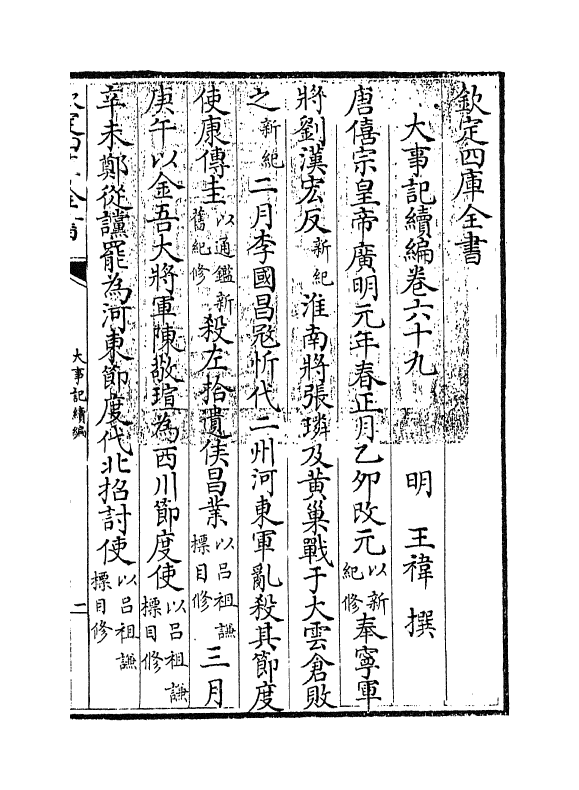 欽定四庫全書
大事記續編卷六十九 明 王禕 撰
唐僖宗皇帝廣明元年春正月乙卯改元以新紀修奉寧軍
將劉漢宏反新紀淮南將張璘及黃巢戰于大雲倉敗
之新紀二月李國昌宼忻代二州河東軍亂殺其節度
使康傳圭以通鑑新舊紀修殺左拾遺侯昌業以呂祖謙標目修三月
庚午以金吾大將軍陳敬瑄為西川節度使以呂祖謙標目修
辛未鄭從讜罷為河東節度代北招討使以呂祖謙標目修
大事記續編